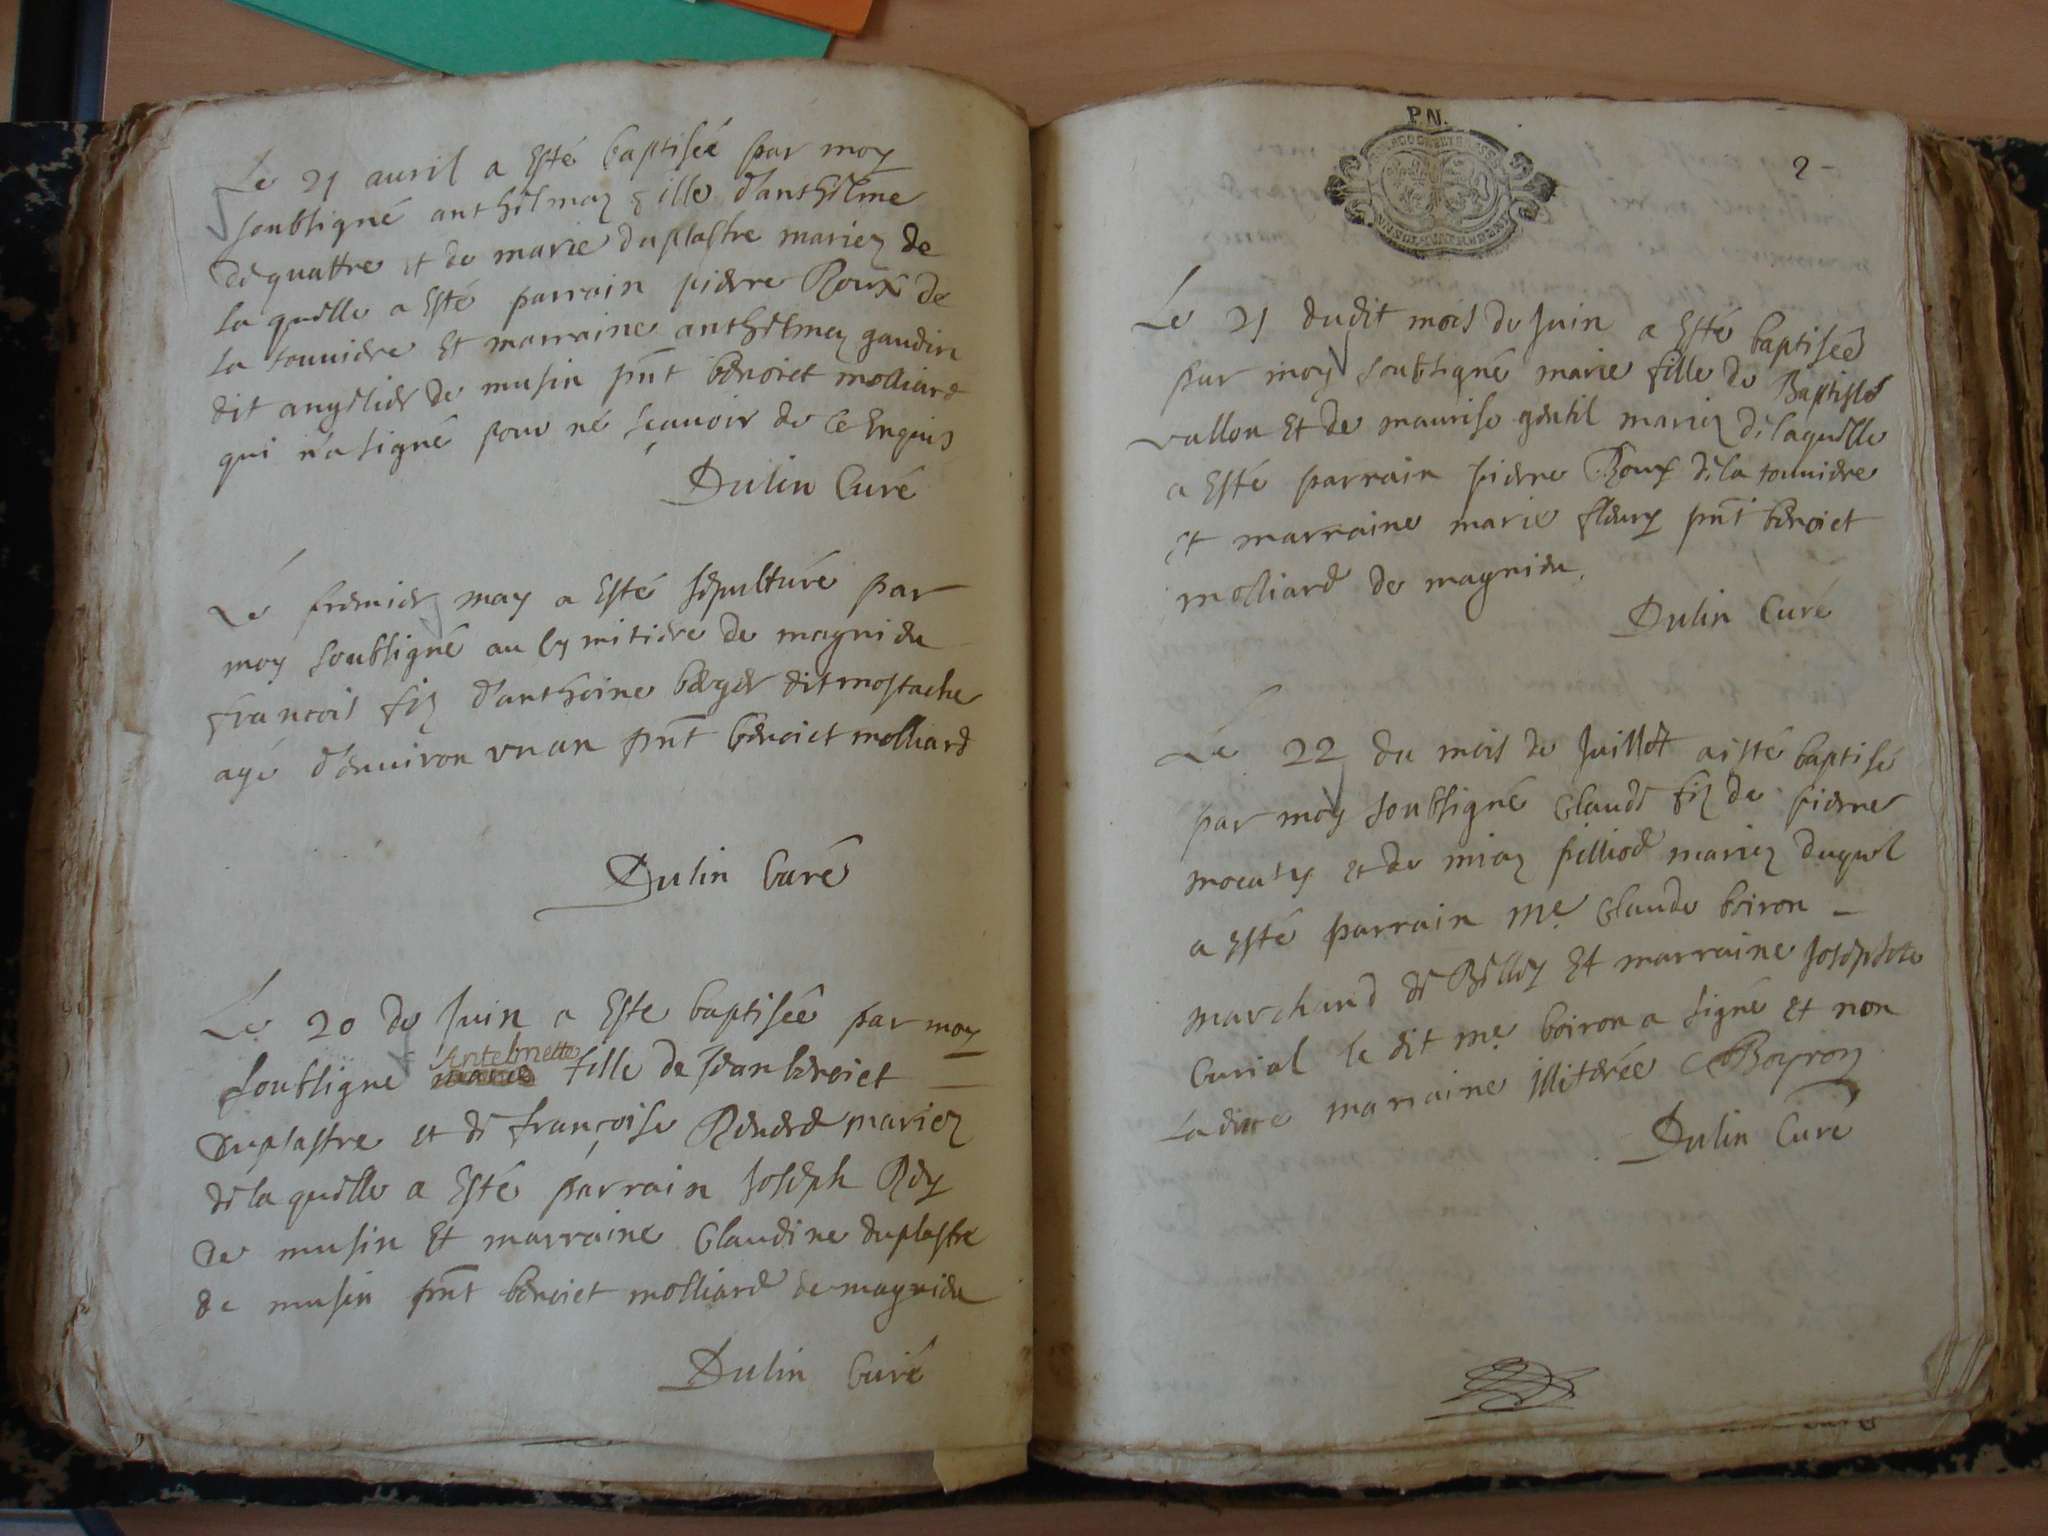 Le 21 auril a esté baptisée par moy
soubsigné anthelmaz fille d'anthelme
dequattre et de marie duplastre mariez de
la quelle a esté parrain pierre Roux de
la touuiere et marraine anthelmez gaudin
dit angelier de musin pnt benoict molliard
qui n'a signé pour né sçauoir de ce Enquis
Dulin Curé
Le premier may a esté sepulturé par
moy soubsigné au cymitiere de magnieu
françois fiz d'anthoine berger dit mostache
agé d'enuiron vn an pnt benoict molliard
Dulin Curé
Le 20 de Juin a Este baptisée par moy
Antelmette
soubsigne marie fille de Jean benoict
duplastre et de françoise Renerd mariez
de la quelle a Esté parrain Joseph Rey
de musin Et marraine Claudine duplastre
de musin pnt benoict molliard de magnieu
Dulin Curé
P.N.
2
Le 21 dudit mois de Juin a Esté baptisée
par moy soubsigné marie fille de Baptiste
vullon Et de maurise gentil mariez de laquelle
a Esté parrain pierre Roux de la touuiere
et marraine marie fleury pnt benoict
molliard de magnieu.
Dulin Curé
Le 22 du mois de Juillet a esté baptisé
par moy soubsigné Claude fiz de pierre
et de miaz pilliod mariez duquel
a esté parrain Me Claude boiron
marchand de Belley Et marraine Josephte
Curial le dit me boiron a signé et non
Ladite marraine illiterée CBoyron
Dulin Curé